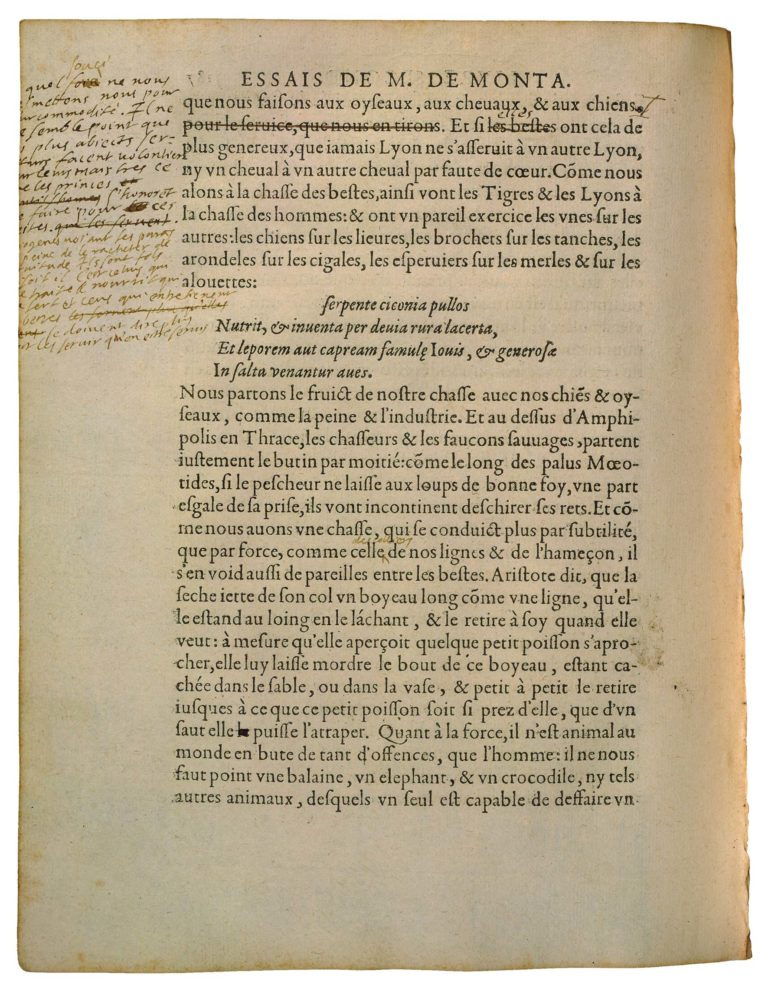 souci
quel ne nous
mettons nous pour
commodité. Il ne
semble point que
plus abiects ser-
facent volontiers
pour leurs maistres ce
les princes
s'honorent
faire pour ces
bestes.
ESSAIS DE M. DE MONTA.
que nous faiſons aux oyſeaux, aux cheuaux, & aux chiens.
pour le ſeruice, que nous en tirons. Et ſi les beſtes elles ont cela de
plus genereux, que iamais Lyon ne s'aſſeruit à vn autre Lyon,
ny vn cheual à vn autre cheual par faute de cœur. Cõme nous
alons à la chaſſe des beſtes, ainſi vont les Tigres & les Lyons à
la chaſſe des hommes: & ont vn pareil exercice les vnes ſur les
autres: les chiens ſur les lieures, les brochets ſur les tanches, les
arondeles ſur les cigales, les eſperuiers ſur les merles & ſur les
alouettes:
ſerpente ciconia pullos
Nutrit, & inuenta per deuia rura lacerta,
Et leporem aut capream famulę Iouis, & generoſæ
In ſalta venantur aues.
Nous partons le fruict de noſtre chaſſe auec nos chiẽs & oy-
ſeaux, comme la peine & l'induſtrie. Et au deſſus d'Amphi-
polis en Thrace, les chaſſeurs & les faucons ſauuages, partent
iuſtement le butin par moitié: cõme le long des palus Mœo-
tides, ſi le peſcheur ne laiſſe aux loups de bonne foy, vne part
eſgale de ſa priſe, ils vont incontinent deſchirer ſes rets. Et cõ-
me nous auons vne chaſſe, qui ſe conduict plus par ſubtilité,
que par force, comme celle de nos lignes & de l'hameçon, il
s'en void auſſi de pareilles entre les beſtes. Ariſtote dit, que la
ſeche iette de ſon col vn boyeau long cõme vne ligne, qu'el-
le eſtand au loing en le láchant, & le retire à ſoy quand elle
veut: à meſure qu'elle aperçoit quelque petit poiſſon s'apro-
cher, elle luy laiſſe mordre le bout de ce boyeau, eſtant ca-
chée dans le ſable, ou dans la vaſe, & petit à petit le retire
iuſques à ce que ce petit poiſſon ſoit ſi prez d'elle, que d'vn
ſaut elle puiſſe l'atraper. Quant à la force, il n'eſt animal au
monde en bute de tant d'offences, que l'homme: il ne nous
faut point vne balaine, vn elephant, & vn crocodile, ny tels
autres animaux, deſquels vn ſeul eſt capable de deffaire vn